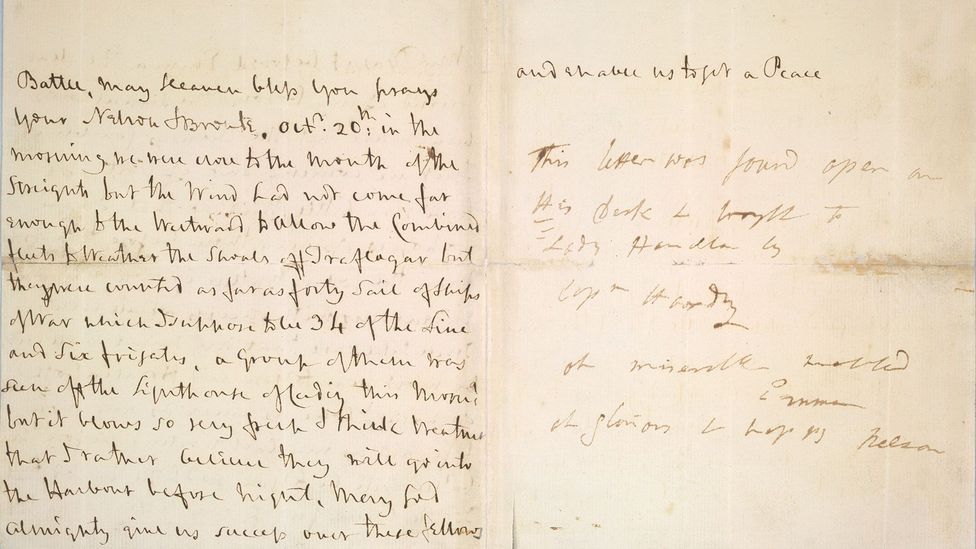 Battle, may Heaven bless you prays
your Nelson & Bronte, Octr. 20th: in the
morning we were close to the mouth of the
Streights but the Wind had not come far
enough to the Westward to allow the Combined
fleets to Weather the Shoals off Traflagar but
they were counted as far as forty Sail of Ships
of War which I suppose to be 34 of the Line
and Six frigates, a Group of them was
seen off the Lighthouse of Cadiz this Morng
but it blows so very fresh I think Weather
that I rather believe they will go into
the Harbour before night, May God
Almighty give us success over these fellows
and enable us to get a Peace
This letter was found open on
His Desk & brought to
Lady Hamilton by
Capn Hardy
oh miserable wretched
Emma
oh glorious & happy Nelson